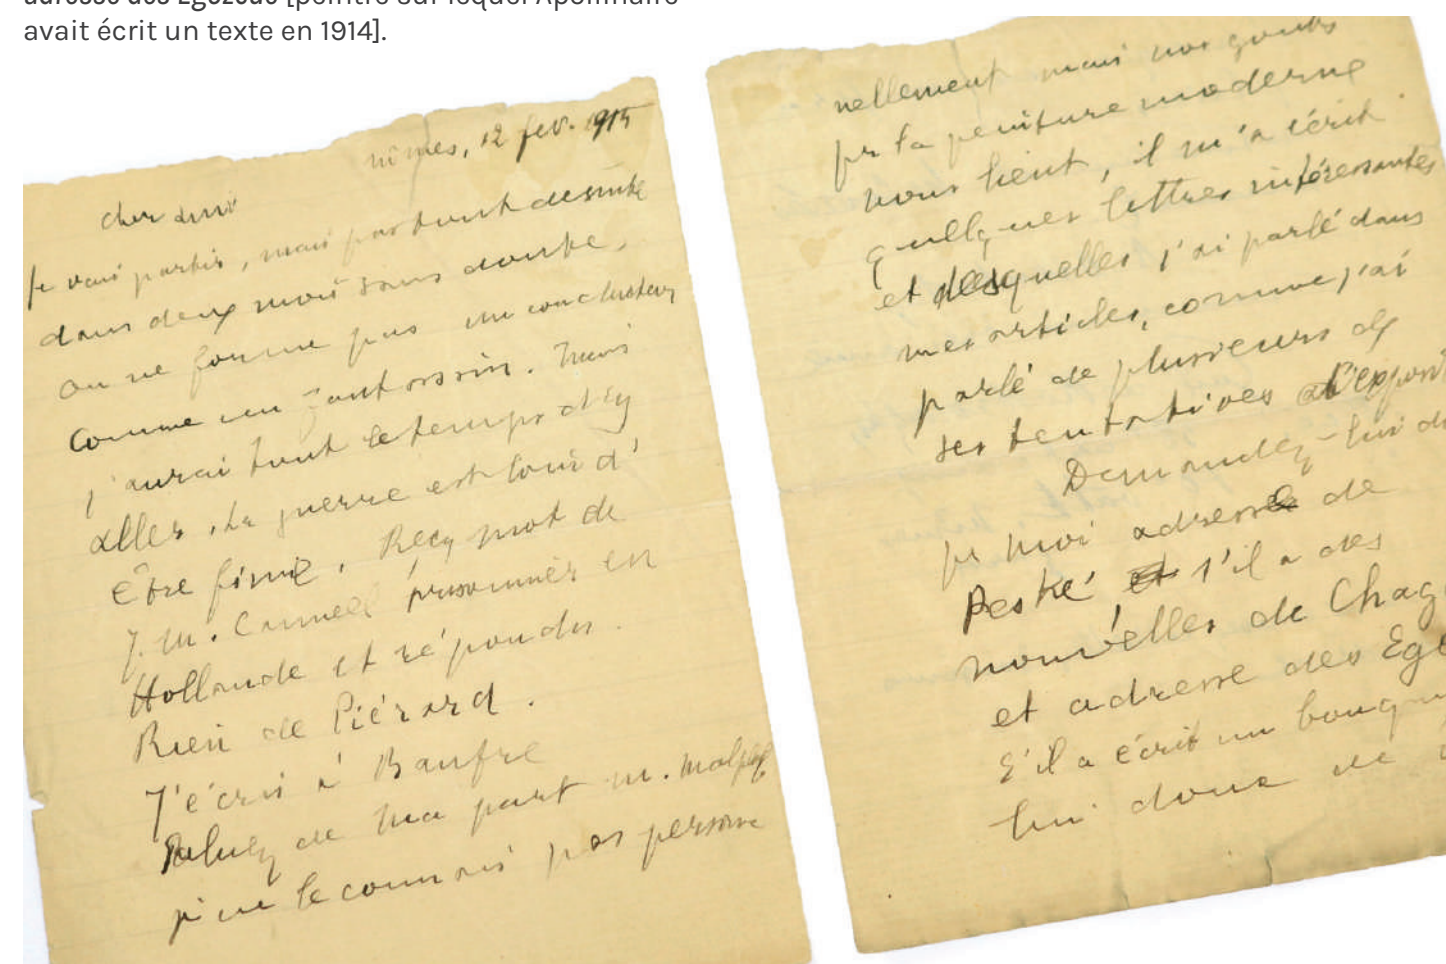 adresse des Egozcue [peintre sur lequel Apollinaire
avait écrit un texte en 1914].
Nîmes, 12 fev. 1915
cher ami
Je vais partir, mais pas tout de suite
dans deux mois sans doute,
on ne forme pas un conducteur
comme un fantassin. Mais
j'aurai tout le temps d'y
aller, la guerre est loin d'
être finie. Reçu mot de
J. M. prisonnier en
Hollande et répondu.
Rien de Piérard.
J'écris à
Saluez de ma part M.
je ne le connais pas person
nellement mais nos goûts
pr la peinture moderne
nous lient, il m'a écrit
quelques lettres intéressantes
et desquelles j'ai parlé dans
mes articles, comme j'ai
parlé de plusieurs de
ses tentatives d'exposit
Demandez-lui
pr moi adresse de
Peské s'il a des
nouvelles de Chag
et adresse des Eg
S'il a écrit un bouqu
lui donc